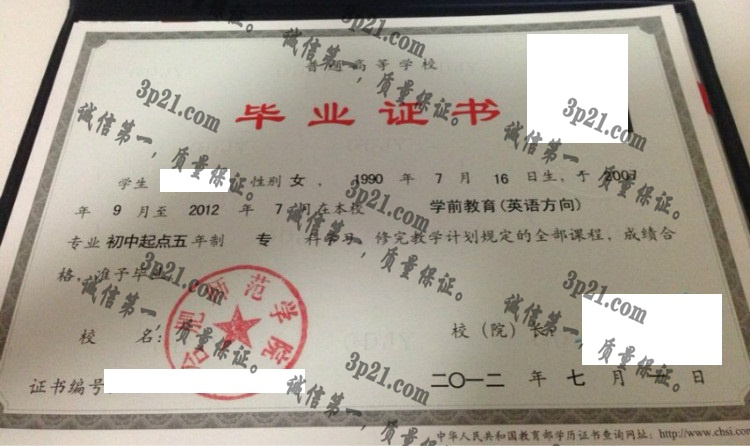 普通高等学校
毕业证书
学生 性别 女 、 1990 年 7 月 16 日生，于 2007
年 9 月至 2012 年 7 月在本校 学前教育(英语方向)
专业 初中起点五 年制 专 科学习，修完教学计划规定的全部课程，成绩合
格，准予毕业。
合肥师范学院
校 名： 校（院）长：
证书编号 二〇一二 年 七 月 日
中华人民共和国教育部学历证书查询网址：http://www.chsi.com
3p21.com
诚信第一，质量保证。
3p21.com
诚信第一，质量保证。
3p21.com
诚信第一，质量保证。
3p21.com
诚信第一，质量保证。
3p21.com
诚信第一，质量保证。
3p21.com
诚信第一，质量保证。
3p21.com
诚信第一，质量保证。